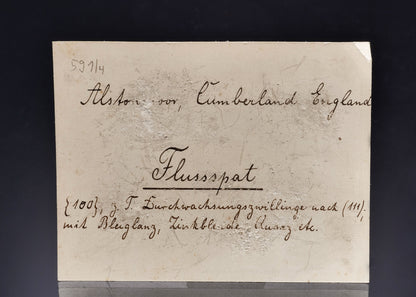 591/4
Alston Moor, Cumberland England
Flussspat
{100}, z. T. Durchwachsungszwillinge nach (111);
mit Bleiglanz, Zinkblende, Quarz etc.